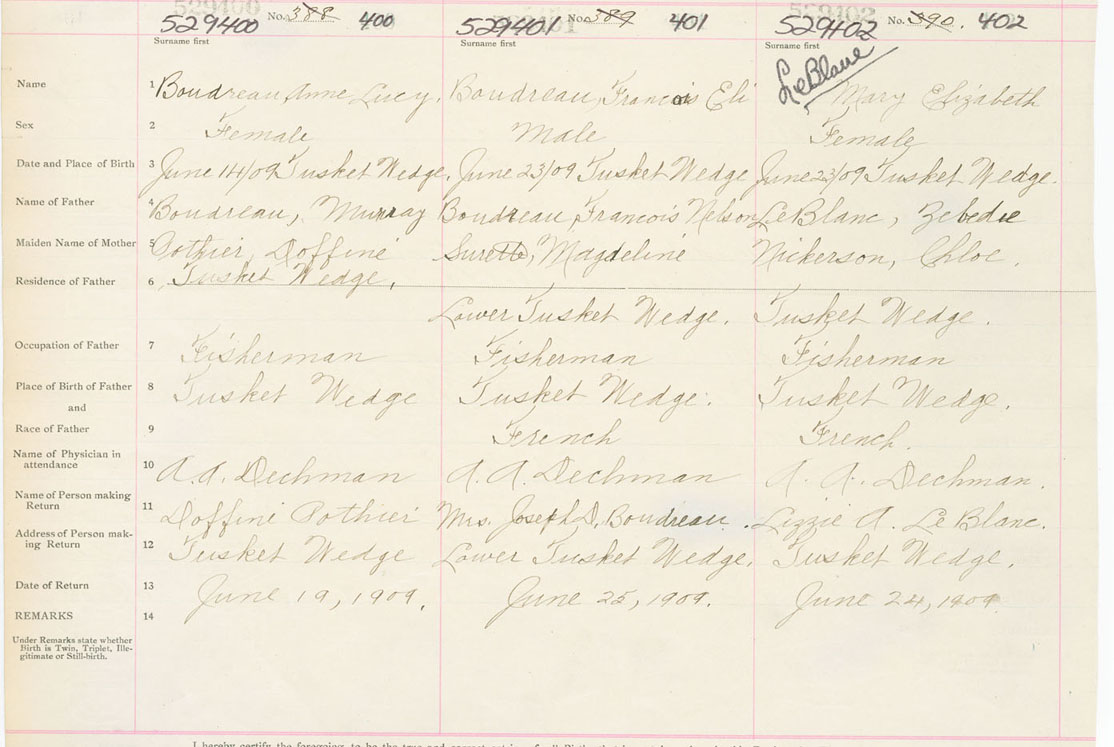 529400 No. 388 400 529401 No. 389 401 529402 No. 390. 402
Surname first Surname first Surname first
LeBlanc
Name 1 Boudreau, Anne Lucy. Boudreau, Francois Eli Mary Elizabeth
Sex 2 Female Male Female
Date and Place of Birth 3 June 14/09 Tusket Wedge. June 23/09 Tusket Wedge June 23/09 Tusket Wedge.
Name of Father 4 Boudreau, Murray Boudreau, Francois Nelson LeBlanc, Zebedie
Maiden Name of Mother 5 Pothier, Doffine Surette, Magdeline Nickerson, Chloe.
Residence of Father 6 Tusket Wedge,
Lower Tusket Wedge. Tusket Wedge.
Occupation of Father 7 Fisherman Fisherman Fisherman
Place of Birth of Father 8 Tusket Wedge Tusket Wedge. Tusket Wedge.
and
Race of Father 9 French French.
Name of Physician in
attendance 10 A. A. Dechman A. A. Dechman A. A. Dechman.
Name of Person making
Return 11 Doffine Pothier Mrs. Joseph D. Boudreau. Lizzie A. Le Blanc.
Address of Person mak-
ing Return 12 Tusket Wedge Lower Tusket Wedge. Tusket Wedge.
Date of Return 13 June 19, 1909. June 25, 1909. June 24, 1909
REMARKS 14
Under Remarks state whether
Birth is Twin, Triplet, Ille-
gitimate or Still-birth.